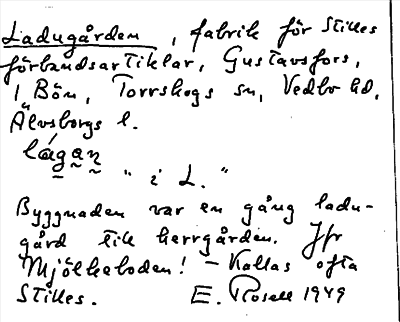 Ladugården, fabrik för Stilles
förbandsartiklar, Gustavsfors,
1 Bön, Torrskogs sn, Vedbo hd,
Älvsborgs l.
lágan
"i L."
Byggnaden var en gång ladu-
gård till herrgården. Jfr
Mjölkeboden! - Kallas ofta
Stilles. E. Rosell 1949